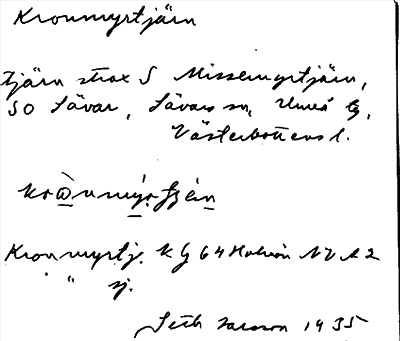 Kronmyrtjärn
tjärn strax S Missemyrtjärn,
SO Sävar, Sävars sn, Umeå tg,
Västerbottens l.
Kronmyrtj. K G 64 Holmön NV A2
" sj.
Seth Larsson 1935